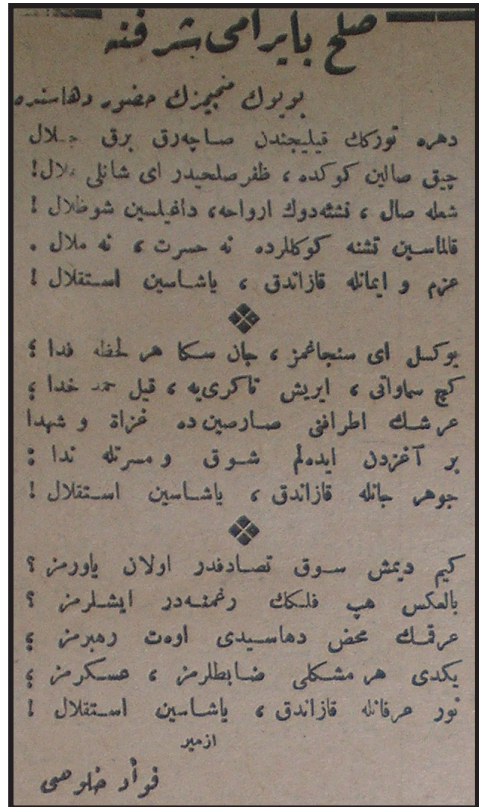 صلح بایرامی شرفنه
بویوك منجیمزك حضور دهاسنده
دهره توركك قیلیجندن صاچه‌رق برق جلال
چیق صالین كوكده ، ظفر صلحیدر ای شانلی هلال!
شعله صال ، نشئه‌دوك ارواحه، داغیلسین شو ظلال !
قالماسین تشنه كوكللرده نه حسرت ، نه ملال .
عزم و ایمانله قازاندق ، یاشاسین استقلال !
یوكسل ای سنجاغمز ، جان سكا هر لحظه فدا ؛
كچ سماواتی ، ایریش تاكری‌یه ، قیل حمد خدا ؛
عرشك اطرافنی صارصین ده غزاة و شهدا
بر آغزدن ایده‌لم شوق و مسرتله ندا :
جوهر جانله قازاندق ، یاشاسین استقلال !
كیم دیمش سوق تصادفدر اولان یاورمز ؟
بالعكس هپ فلكك رغمنه‌در ایشلرمز ؟
عرقمك محض دهاسیدی اوت رهبرمز ؛
یكدی هر مشكلی ضابطلرمز ، عسكرمز ؛
نور عرفانله قازاندق ، یاشاسین استقلال !
ازمیر
فوأد خلوصی